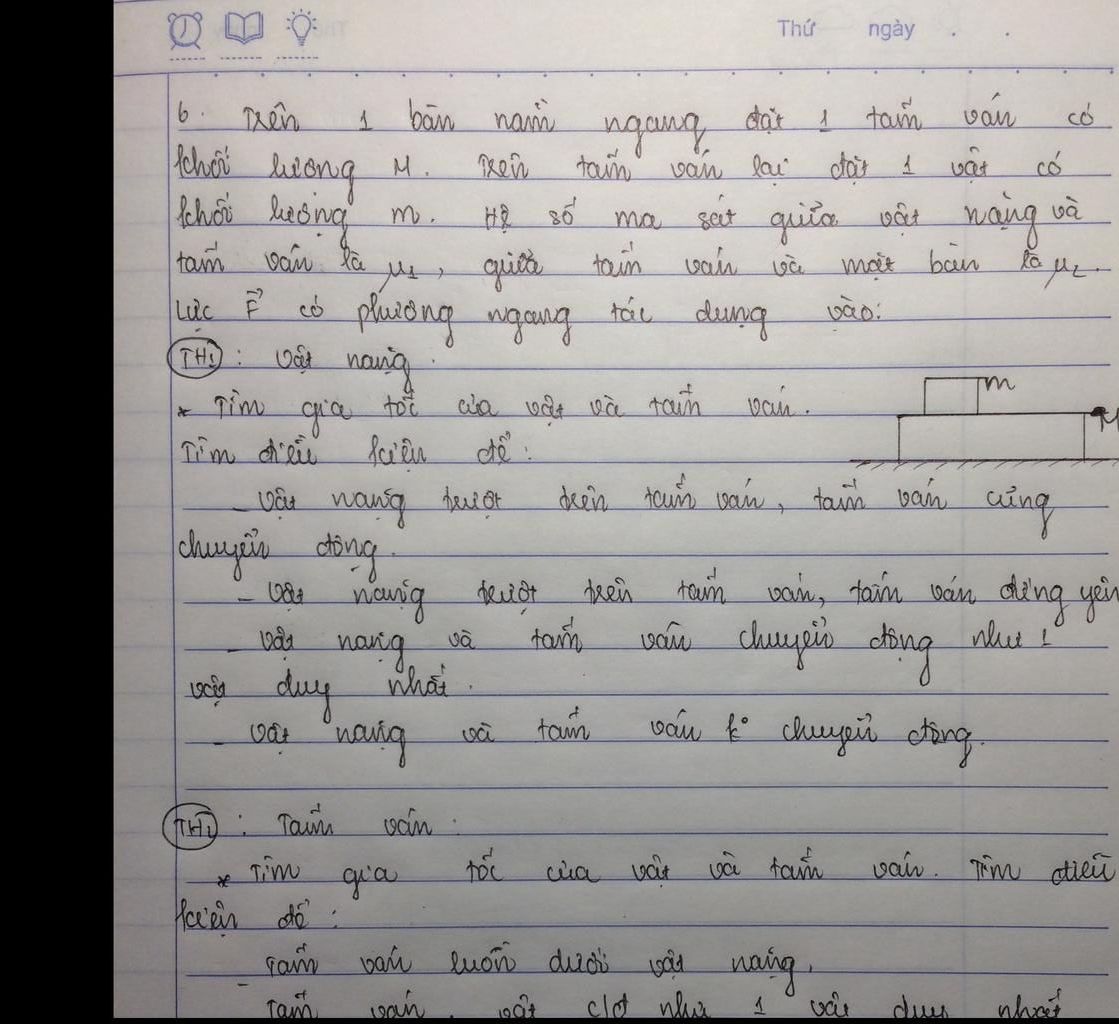 Thứ ngày . .
6. Trên 1 bàn nằm ngang đặt 1 tấm ván có
khối lượng M. Trên tấm ván lại đặt 1 vật có
khối lượng m. Hệ số ma sát giữa vật nặng và
tấm ván là μ1, giữa tấm ván và mặt bàn là μ2.
Lực F⃗ có phương ngang tác dụng vào:
TH1 : Vật nặng.
* Tìm gia tốc của vật và tấm ván.
m
M
Tìm điều kiện để:
- Vật nặng trượt trên tấm ván, tấm ván cũng
chuyển động.
- Vật nặng trượt trên tấm ván, tấm ván đứng yên
- Vật nặng và tấm ván chuyển động như 1
vật duy nhất.
- Vật nặng và tấm ván k° chuyển động.
: Tấm ván :
* Tìm gia tốc của vật và tấm ván. Tìm điều
kiện để :
- Tấm ván luồn dưới vật nặng,
Tấm ván, vật cđ như 1 vật duy nhất